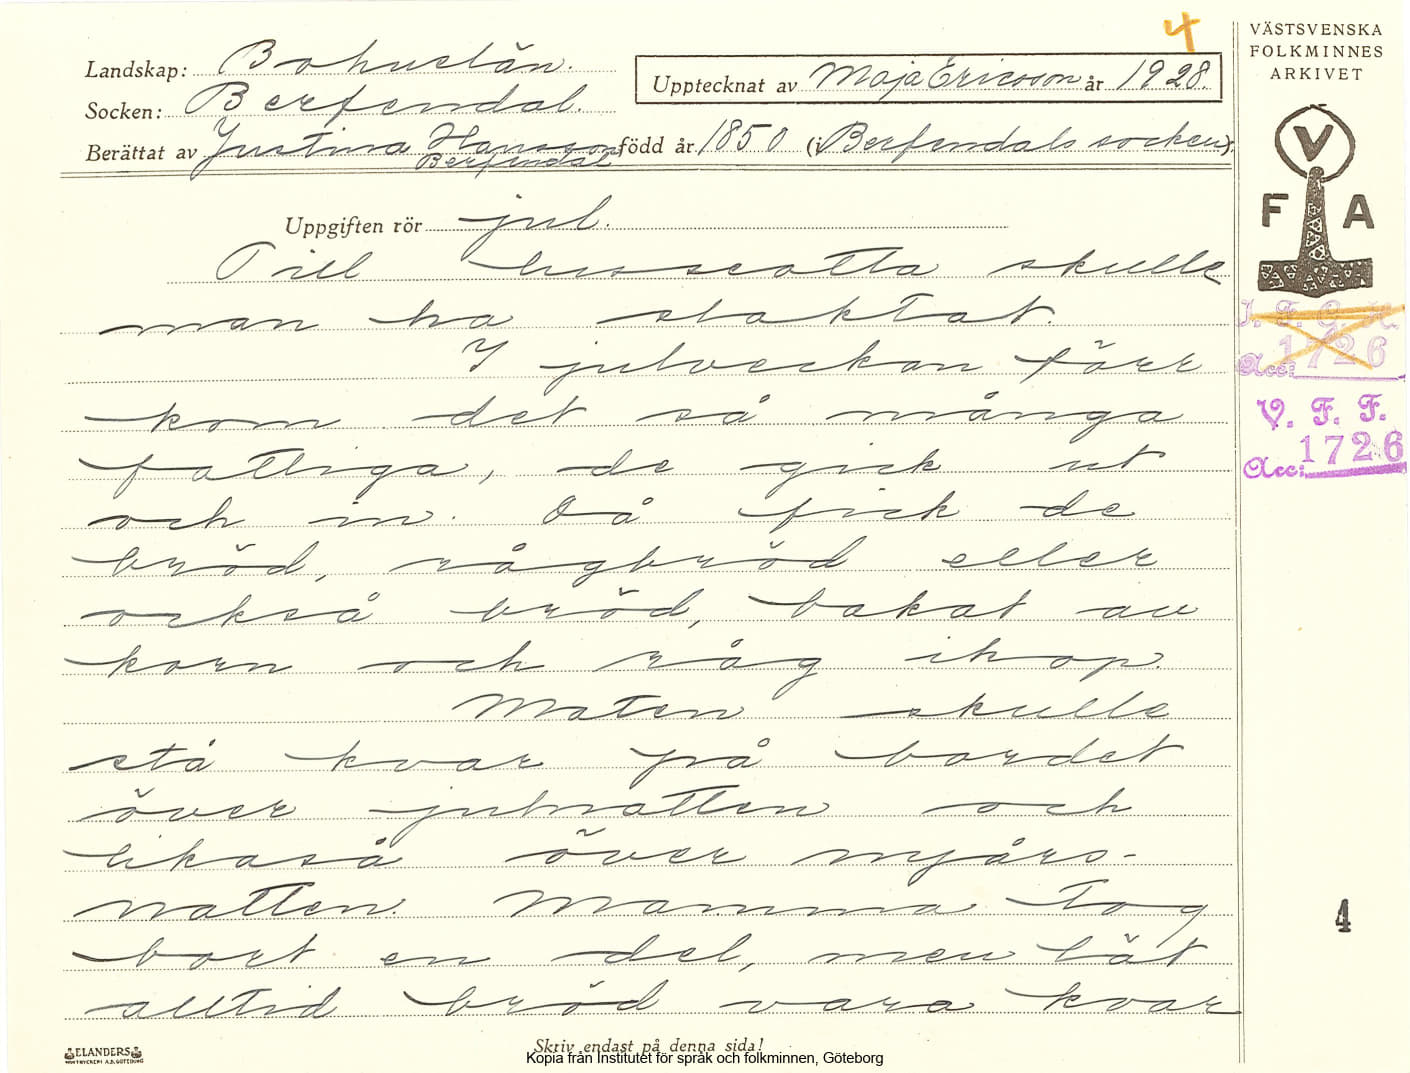 4
VÄSTSVENSKA
FOLKMINNES
ARKIVET
Landskap: Bohuslän.
Upptecknat av Maja Ericson år 1928.
Socken: Berfendal.
Berättat av Justina Hansson född år 1850 (i Berfendals socken).
Berfendal
V
F A
Uppgiften rör jul.
Till lusseotta skulle
man ha slaktat.
I julveckan färr
kom det så många
fattiga, de gick ut
och in. Då fick de
bröd, rågbröd eller
också bröd, bakat av
korn och råg ihop.
Maten skulle
stå kvar på bordet
över julnatten och
likaså över nyårs-
natten. Mamma tog
bort en del, men lät
alltid bröd vara kvar
I. F. G. H.
Acc: 1726
V. F. F.
Acc: 1726
4
ELANDERS
Skriv endast på denna sida!
Kopia från Institutet för språk och folkminnen, Göteborg